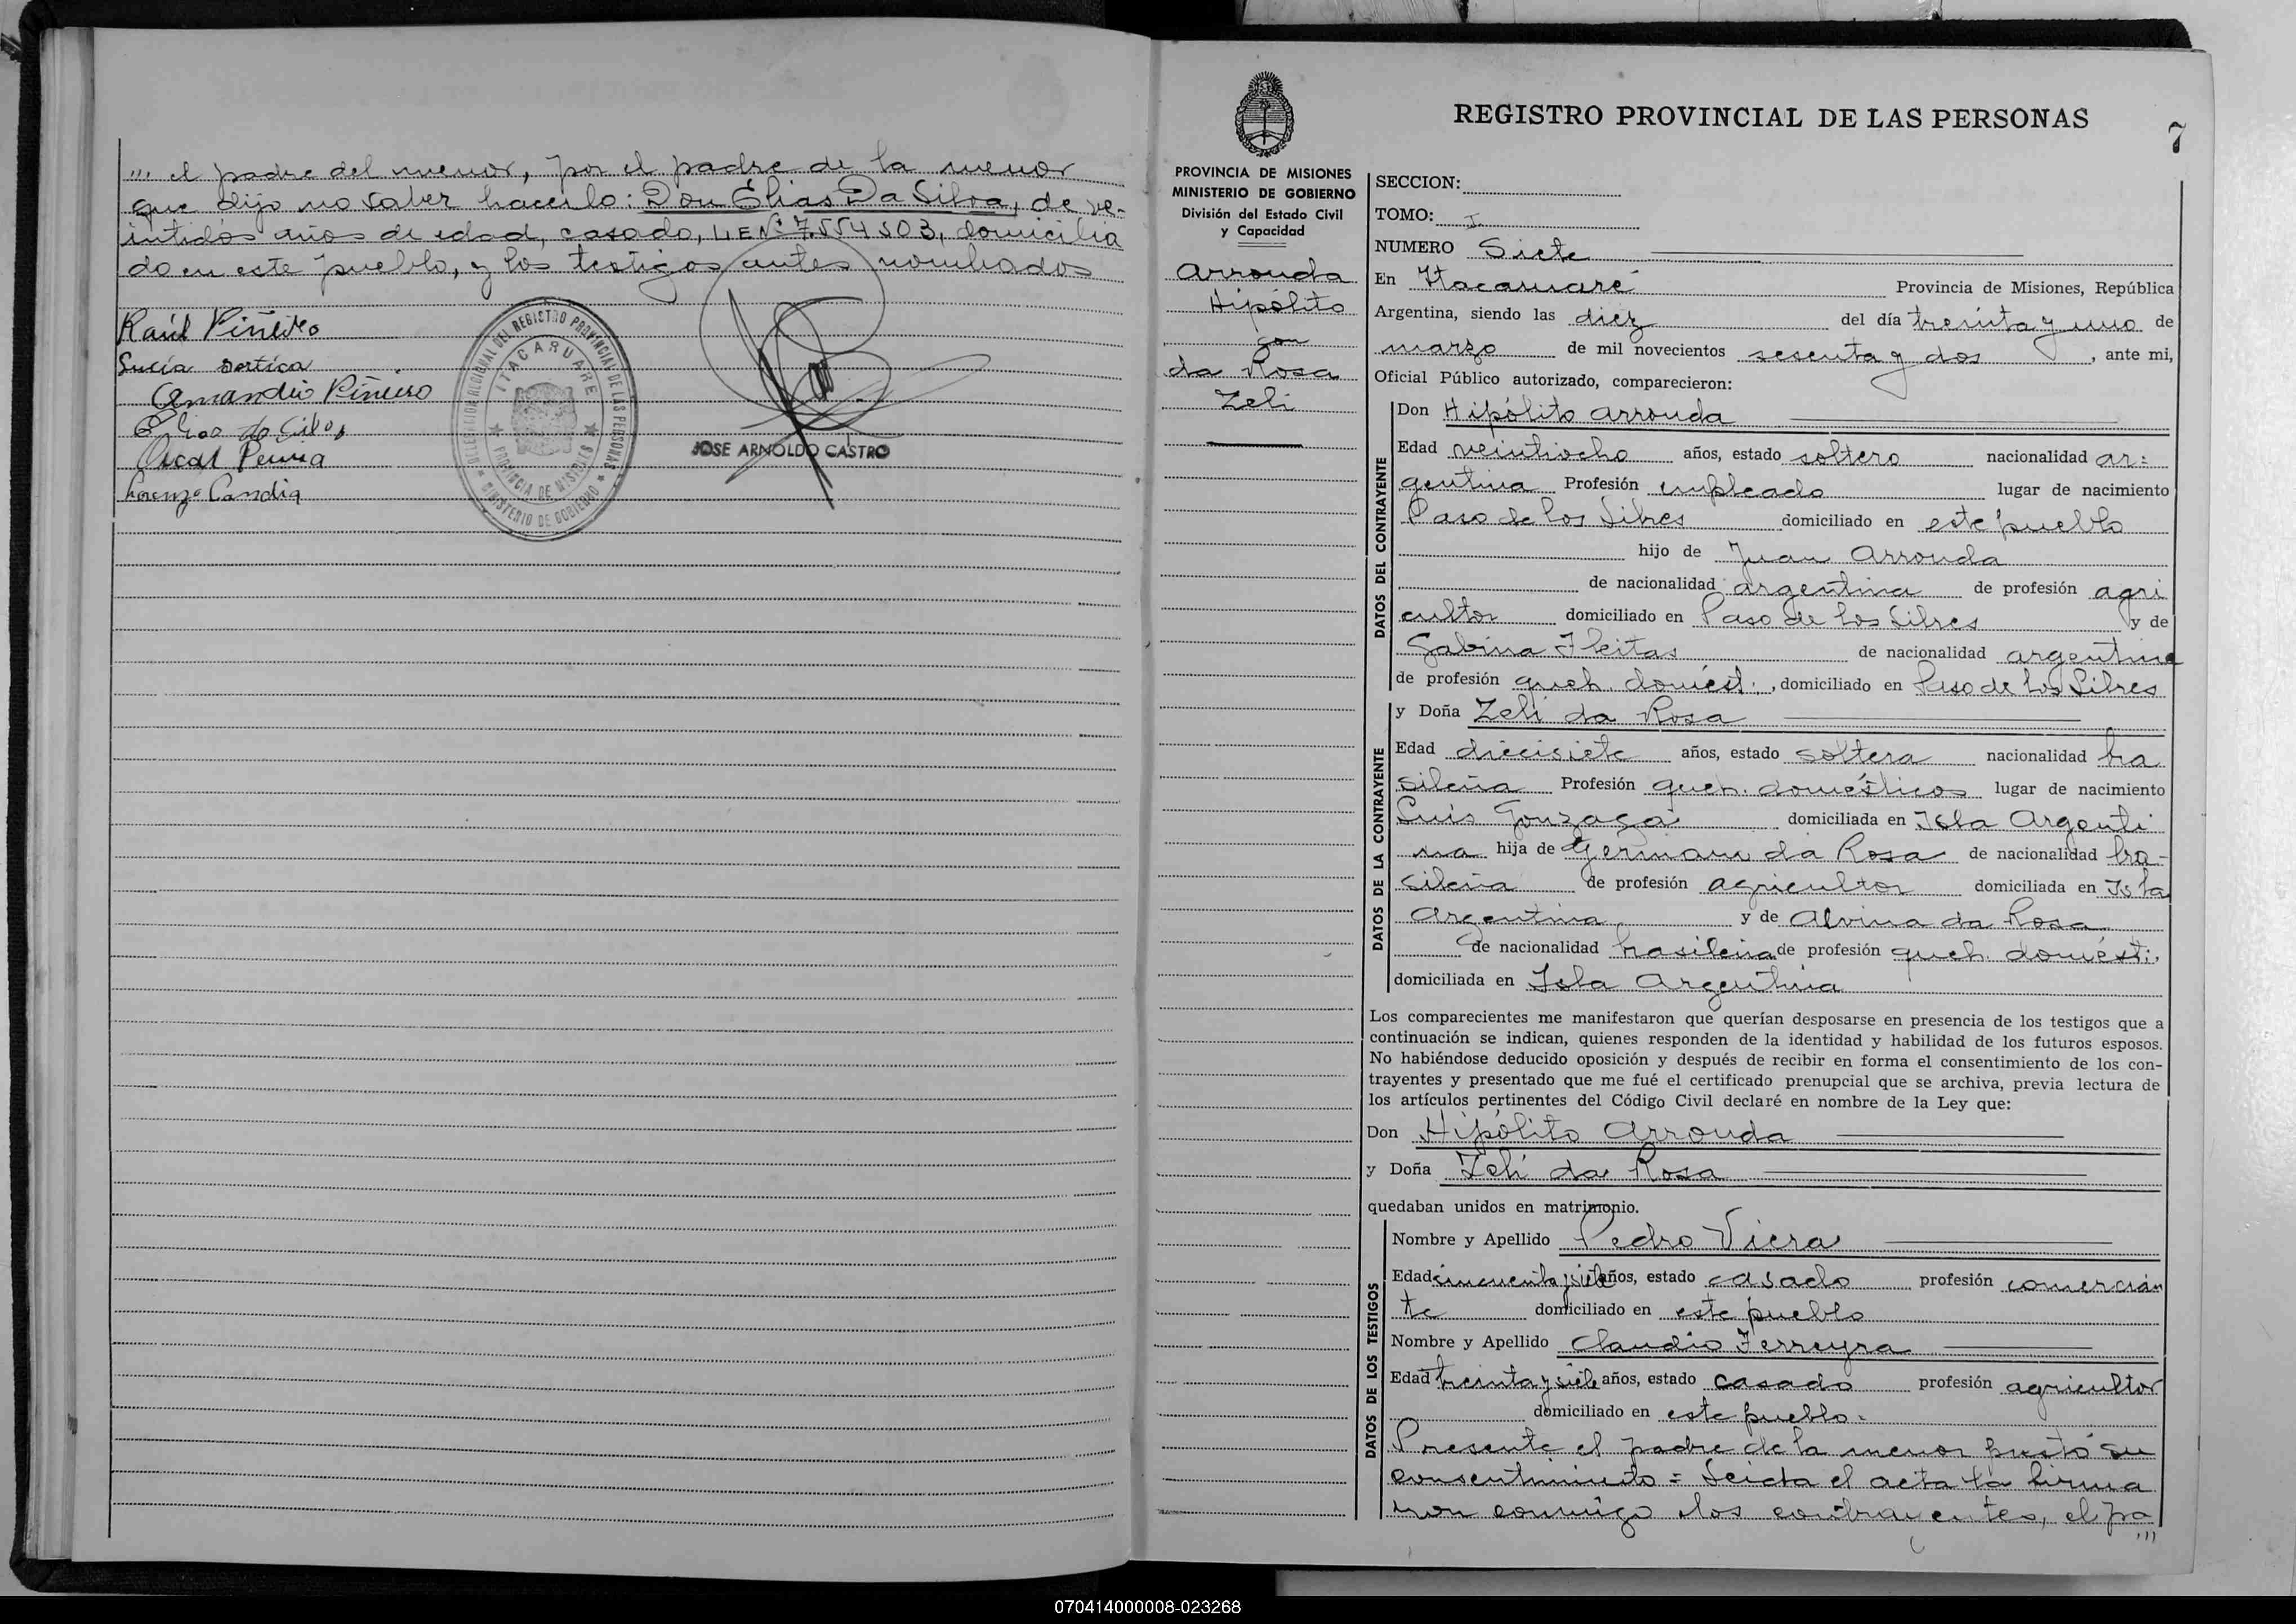 ''' el padre del menor, por el padre de la menor
que dijo no saber hacerlo: Don Elias Da Silva, de ve-
intidós años de edad, casado, L.E.Nº 7.554.503, domicilia
do en este pueblo, y los testigos antes nombrados
Raúl Piñeiro
Lucía
Amandio Piñeiro
Elias da Silva
Oscar
Lorenzo Candia
DELEGACION REGIONAL DEL REGISTRO PROVINCIAL DE LAS PERSONAS
ITACARUARE
PROVINCIA DE MISIONES
MINISTERIO DE GOBIERNO
JOSE ARNOLDO CASTRO
REGISTRO PROVINCIAL DE LAS PERSONAS
7
PROVINCIA DE MISIONES
MINISTERIO DE GOBIERNO
División del Estado Civil
y Capacidad
Arronda
Hipólito
con
da Rosa
Zeli
SECCION:
TOMO: I
NUMERO Siete
En Itacaruaré Provincia de Misiones, República
Argentina, siendo las diez del día treinta y uno de
marzo de mil novecientos sesenta y dos, ante mi,
Oficial Público autorizado, comparecieron:
DATOS DEL CONTRAYENTE
Don Hipólito Arronda
Edad veintiocho años, estado soltero nacionalidad ar-
gentina Profesión empleado lugar de nacimiento
Paso de los Libres domiciliado en este pueblo
hijo de Juan Arronda
de nacionalidad argentina de profesión agri
cultor domiciliado en Paso de los Libres y de
Sabina Fleitas de nacionalidad argentina
de profesión queh. domést., domiciliado en Paso de los Libres
DATOS DE LA CONTRAYENTE
y Doña Zeli da Rosa
Edad diecisiete años, estado soltera nacionalidad bra
sileña Profesión queh. domésticos lugar de nacimiento
Luis Gonzaga domiciliada en Isla Argenti
na hija de Germano da Rosa de nacionalidad bra-
sileña de profesión agricultor domiciliada en Isla
Argentina y de Alvina da Rosa
de nacionalidad brasileña de profesión queh. domésti.
domiciliada en Isla Argentina
Los comparecientes me manifestaron que querían desposarse en presencia de los testigos que a
continuación se indican, quienes responden de la identidad y habilidad de los futuros esposos.
No habiéndose deducido oposición y después de recibir en forma el consentimiento de los con-
trayentes y presentado que me fué el certificado prenupcial que se archiva, previa lectura de
los artículos pertinentes del Código Civil declaré en nombre de la Ley que:
Don Hipólito Arronda
y Doña Zeli da Rosa
quedaban unidos en matrimonio.
DATOS DE LOS TESTIGOS
Nombre y Apellido Pedro Viera
Edad cincuenta y siete años, estado casado profesión comercian
te domiciliado en este pueblo
Nombre y Apellido Claudio Ferreyra
Edad treinta y siete años, estado casado profesión agricultor
domiciliado en este pueblo.
Presente el padre de la menor prestó su
consentimiento = Leída el acta la firma
ron conmigo los contrayentes, el pa
'''
070414000008-023268